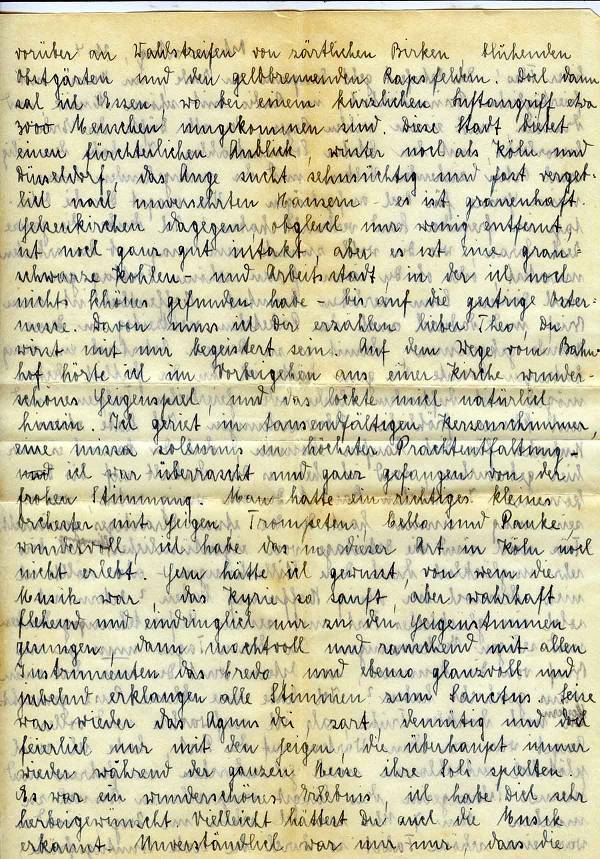 vorüber an Waldstreifen von zärtlichen Birken blühenden
Obstgärten und den gelbbrennenden Rapsfeldern. Doch dann
sah ich Essen, wo bei einem kürzlichen Luftangriff etwa
3000 Menschen umgekommen sind. Diese Stadt bietet
einen fürchterlichen Anblick, wüster noch als Köln und
Düsseldorf, das Auge sucht sehnsüchtig und fast vergeb-
lich nach unversehrten Häusern – es ist grauenhaft.
Gelsenkirchen dagegen obgleich nur wenig entfernt,
ist noch ganz gut intakt, aber es ist eine grau-
schwarze Kohlen- und Arbeitsstadt, in der ich noch
nichts Schönes gefunden habe – bis auf die gestrige Oster-
messe. Davon muss ich Dir erzählen lieber Theo, Du
wirst mit mir begeistert sein. Auf dem Wege vom Bahn-
hof hörte ich im Vorbeigehen aus einer Kirche wunder-
schönes Geigenspiel, und das lockte mich natürlich
hinein. Ich geriet in tausendfältigen Kerzenschimmer,
eine missa solemnis in höchster Prachtentfaltung –
und ich war überrascht und ganz gefangen von der
frohen Stimmung. Man hatte ein richtiges kleines
Orchester mit Geigen Trompeten, Cello und Pauke,
wundervoll ich habe das in dieser Art in Köln noch
nicht erlebt. Gern hätte ich gewusst von wem die
Musik war, das Kyrie so sanft, aber wahrhaft
flehend und eindringlich nur zu den Geigenstimmen
gesungen, dann machtvoll und rauschend mit allen
Instrumenten das Credo und ebenso glanzvoll und
jubelnd erklangen alle Stimmen zum Sanctus. Leise
war wieder das Agnus Dei, zart, demütig und doch
feierlich nur mit den Geigen, die überhaupt immer
wieder während der ganzen Messe ihre Soli spielten.
Es war ein wunderschönes Erlebnis, ich habe Dich sehr
herbeigewünscht. Vielleicht hättest Du auch die Musik
erkannt. Unverständlich war mir nur, dass die